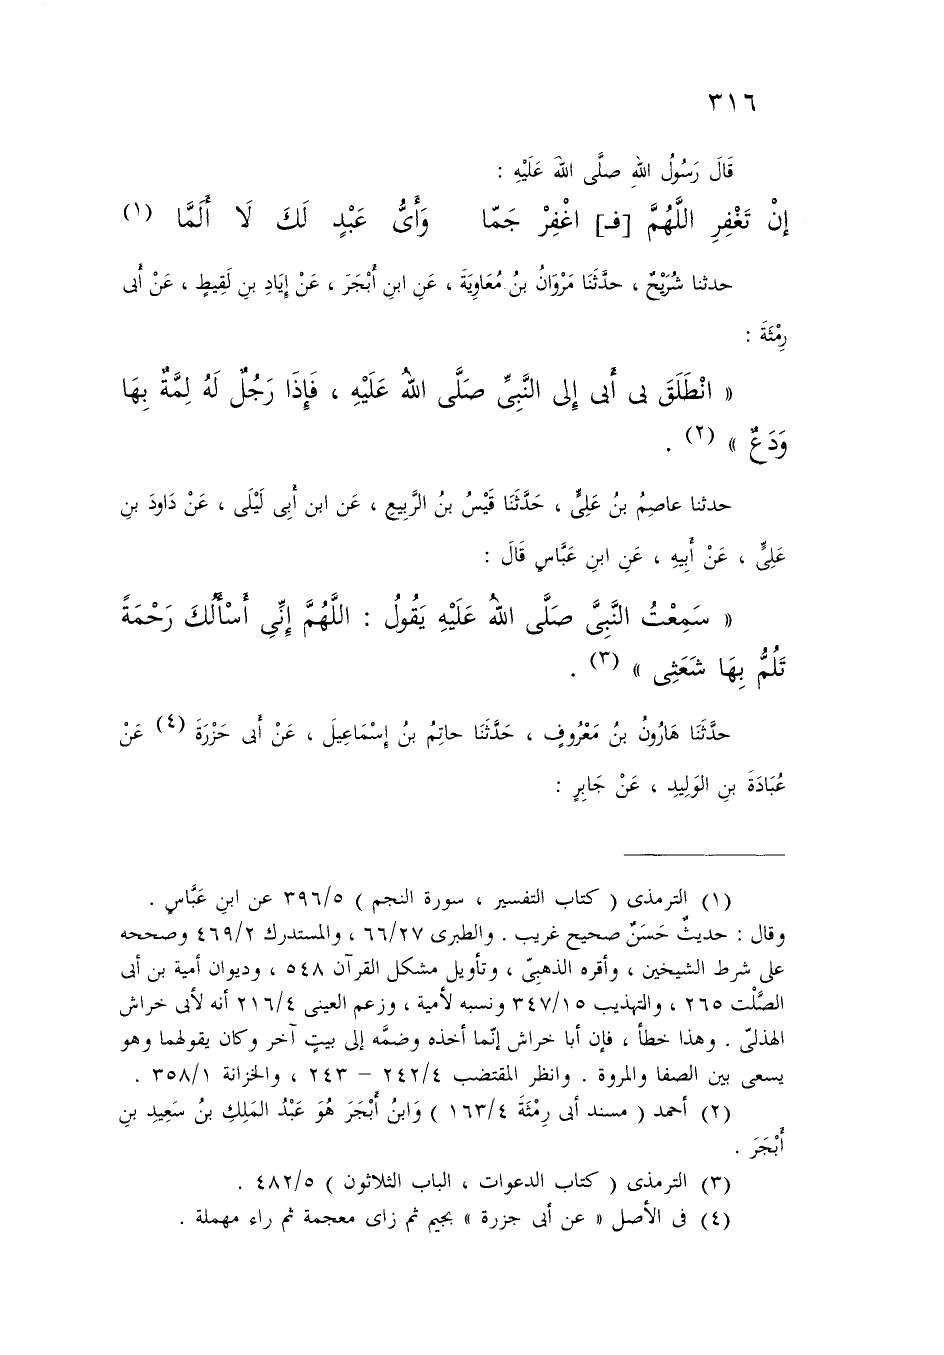 ٣١٦
قَالَ رَسُولُ اللهِ صلَّى اللهُ عَلَيْهِ :
إِنْ تَغْفِرِ اللَّهُمَّ [فـ] اغْفِرْ جَمَّا وَأَىُّ عَبْدٍ لَكَ لَا أَلَمَّا (١)
حدثنا شُرَيْحٌ ، حدَّثَنَا مَرْوَانُ بنُ مُعَاوِيَةَ ، عَنِ ابنِ أَبْجَرَ ، عَنْ إِيَادِ بنِ لَقِيطٍ ، عَنْ أَبى
رِمْثَةَ :
« انْطَلَقَ بى أَبى إِلى النَّبِىِّ صَلَّى اللهُ عَلَيْهِ ، فَإِذَا رَجُلٌ لَهُ لِمَّةٌ بِهَا
وَدَعٌ » (٢) .
حدثنا عاصِمُ بنُ عَلِىٍّ ، حَدَّثَنَا قَيْسُ بنُ الرَّبِيعِ ، عَن ابن أَبِى لَيْلَى ، عَنْ دَاودَ بنِ
عَلِىٍّ ، عَنْ أَبِيهِ ، عَنِ ابنِ عَبَّاسٍ قَالَ :
« سَمِعْتُ النَّبِىَّ صَلَّى اللهُ عَلَيْهِ يَقُولُ : اللَّهُمَّ إِنِّى أَسْأَلُكَ رَحْمَةً
تَلُمُّ بِهَا شَعَثِى » (٣) .
حدَّثَنَا هَارُونُ بنُ مَعْرُوفٍ ، حَدَّثَنَا حاتِمُ بنُ إِسْمَاعِيلَ ، عَنْ أَبى حَزْرَةَ (٤) عَنْ
عُبَادَةَ بنِ الوَلِيدِ ، عَنْ جَابِرٍ :
(١) الترمذى ( كتاب التفسير ، سورة النجم ) ٣٩٦/٥ عن ابنِ عَبَّاسٍ .
وقال : حديثٌ حَسَنٌ صحيح غريب . والطبرى ٦٦/٢٧ ، والمستدرك ٤٦٩/٢ وصححه
على شرط الشيخين ، وأقره الذهبىّ ، وتأويل مشكل القرآن ٥٤٨ ، وديوان أمية بن أبى
الصَّلْت ٢٦٥ ، والتهذيب ٣٤٧/١٥ ونسبه لأمية ، وزعم العينى ٢١٦/٤ أنه لأبى خراش
الهذلىّ . وهذا خطأ ، فإن أبا خراش إنّما أخذه وضمَّه إلى بيتٍ آخر وكان يقولهما وهو
يسعى بين الصفا والمروة . وانظر المقتضب ٢٤٢/٤ – ٢٤٣ ، والخزانة ٣٥٨/١ .
(٢) أحمد ( مسند أبى رِمْثَةَ ١٦٣/٤ ) وَابنُ أَبْجَرَ هُوَ عَبْدُ المَلِكِ بنُ سَعِيدِ بنِ
أَبْجَرَ .
(٣) الترمذى ( كتاب الدعوات ، الباب الثلاثون ) ٤٨٢/٥ .
(٤) فى الأصل « عن أبى جزرة » بجيم ثم زاى معجمة ثم راء مهملة .